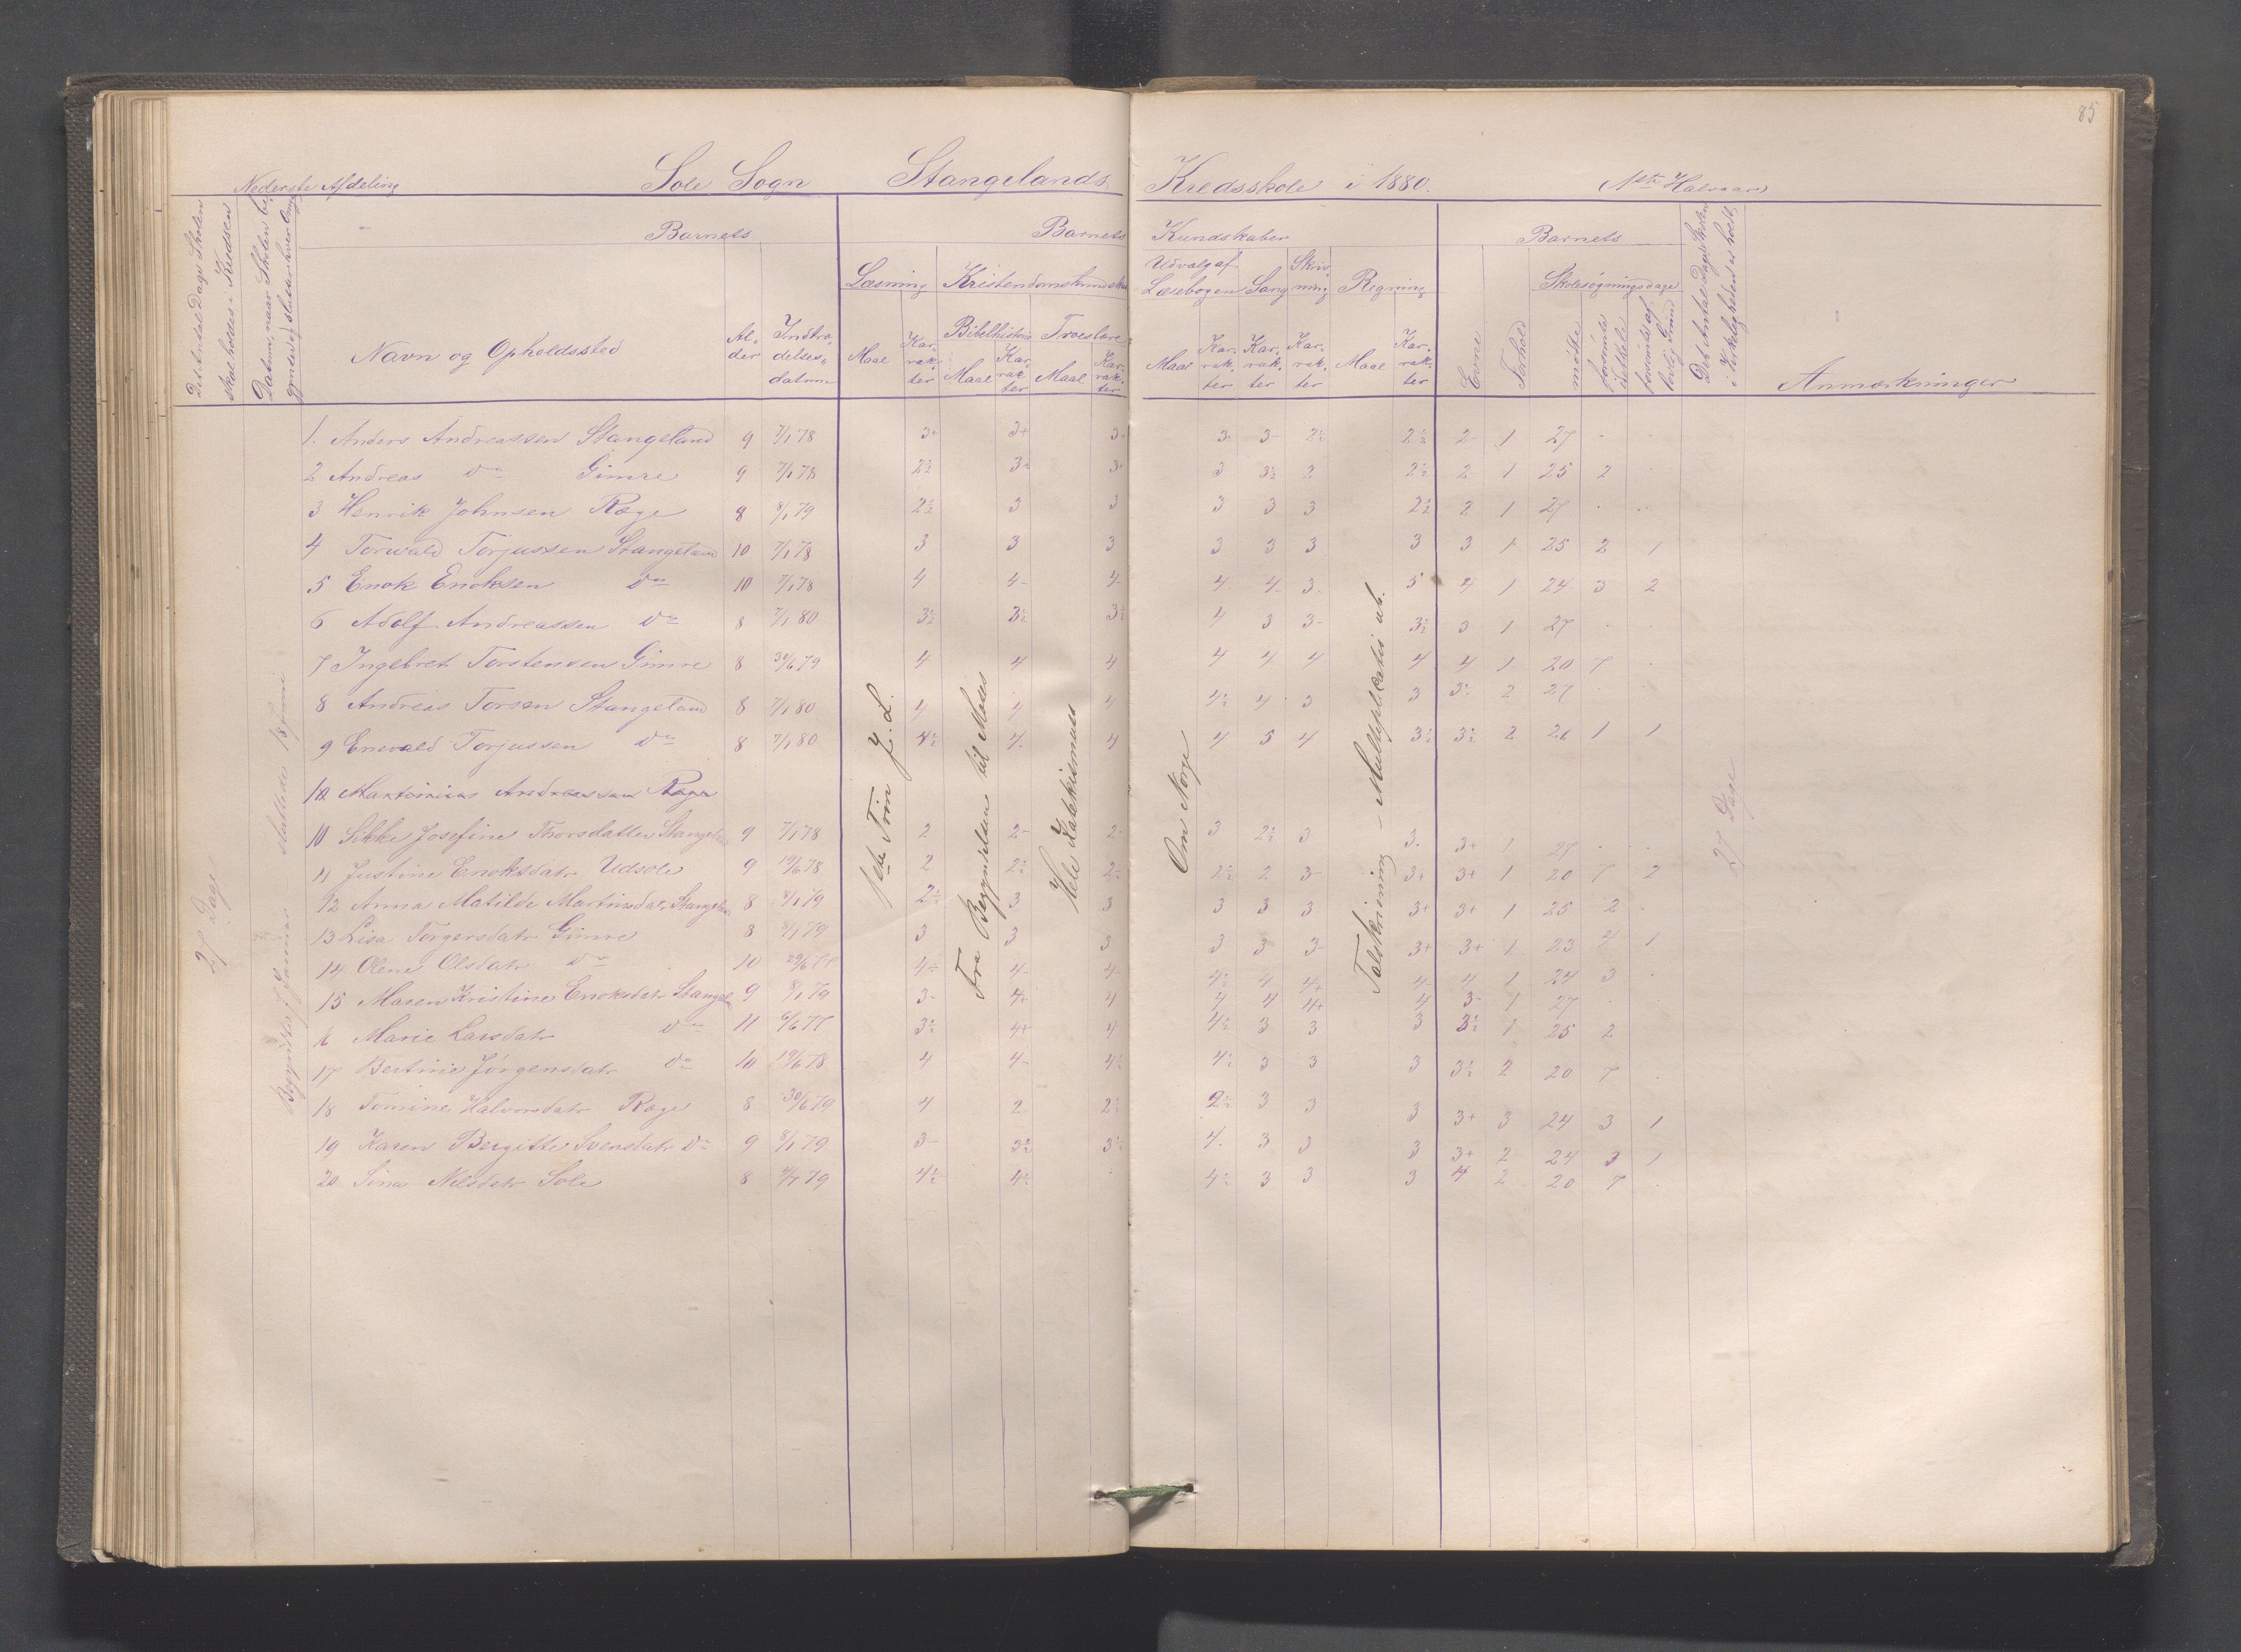 85
Nederste Afdeling Sole Sogn Stangelands Kredsskole i 1880. 1ste Halvaar
Det Antal Dage Skolen skal holdes i Kredsen
Datum, naar Skolen be-
gyndte og sluttes hver Omg.
Barnets
Navn og Opholdssted
Al-
der
Indtræ-
delses-
datum
Barnets Kundskaber
Læsning
Maal
Karakter
Kristendomskundskab
Bibelhistorie
Maal
Karakter
Troeslære
Maal
Karakter
Udvalg af Læsebogen
Maal
Karakter
Sang
Karakter
Skrivning
Karakter
Regning
Maal
Karakter
Barnets
Evne
Forhold
Skolesøgningsdage
mødte
forsømte i det hele
forsømte af lovlig Grund
Det Antal Dage Skolen i Virkeligheden er holdt
Anmærkninger
27 Dage
Begyndte 7 Januar sluttede 18 Juni
1ste Trin J. L.
Fra Begyndelsen til Moses
Hele Katekismus
Om Norge
Talskrivning - Multiplicatis ub.
27 Dage
1. Anders Andreassen Stangeland 9 7/1 78 3+ 3+ 3- 3- 3- 2½ 2½ 2- 1 27 . .
2 Andreas do Gimre 9 7/1 78 2½ 3- 3- 3 3½ 2 2½ 2 1 25 2 .
3 Henrik Johnsen Ræge 8 8/1 79 2½ 3 3 3 3 3 2½ 2 1 27 . .
4 Torvald Torjussen Stangeland 10 7/1 78 3 3 3 3 3 3 3 3 1 25 2 1
5 Enok Enoksen do 10 7/1 78 4 4- 4- 4 4- 3. 5 4 1 24 3 2
6 Adolf Andreassen do 8 7/1 80 3½ 3½ 3½ 4 3 3- 3½ 3 1 27 . .
7 Ingebret Torstensen Gimre 8 30/6 79 4 4 4 4 4 4 4 4 1 20 7 .
8 Andreas Torsen Stangeland 8 7/1 80 4 4 4 4½ 4 3 3 3½ 2 27 . .
9 Enevald Torjussen do 8 7/1 80 4½ 4. 4 4 5 4 3½ 3½ 2 26 1 1
10 Martinius Andreassen Ræge
10 Sikke Josefine Thorsdatter Stangeland 9 7/1 78 2 2- 2- 3 2½ 3 3. 3+ 1 27 . .
11 Justine Enoksdatr Udsole 9 19/6 78 2 2½ 2½ 2½ 2 3- 3+ 3+ 1 20 7 2
12 Anna Matilde Martinsdatr Stangeland 8 8/1 79 2½ 3 3 3 3 3 3+ 3+ 1 25 2 .
13 Lisa Torgersdatr Gimre 8 8/1 79 3 3 3 3 3 3- 3+ 3+ 1 23 4 1
14 Olene Olsdatr do 10 29/6 77 4½ 4- 4- 4½ 4 4+ 4- 4 1 24 3 .
15 Maren Kristine Enoksdatr Stangel 9 8/1 79 3- 4+ 4 4 4 4+ 4 3- 1 27 . .
16 Marie Larsdatr do 11 6/6 77 3½ 4+ 4 4½ 3 3 3 3½ 1 25 2
17 Bertine Jörgensdatr do 10 19/6 78 4 4- 4½ 4½ 3 3 3 3½ 2 20 7 .
18 Tomine Halvorsdatr Ræge 8 30/6 79 4 2 2½ 2½ 3 3 3 3+ 3 24 3 1
19 Karen Bergitte Svensdatr do 9 8/1 79 3- 3½ 3½ 4. 3 3 3 3+ 2 24 3 1
20 Sina Nilsdatr Sole 8 79 4½ 4½ . 4½ 3 3 3 4 2 20 7 .